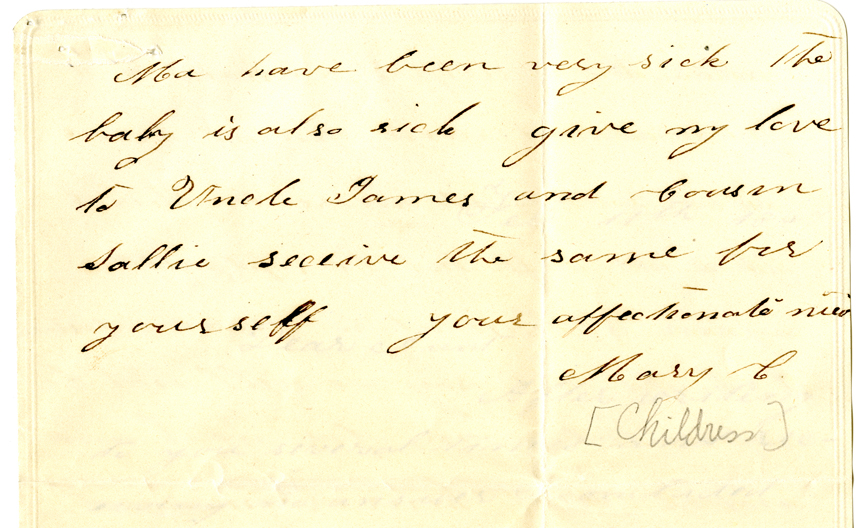 Ma have been very sick The
baby is also sick give my love
to Uncle James and Cousin
Sallie receive the same for
yourself your affectionate niece
Mary C.
[Childress]